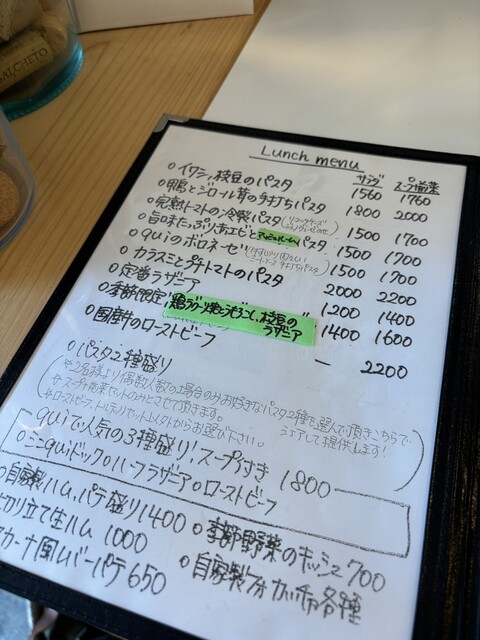 BALCHETO
Lunch menu
サラダ スープ前菜
○イワシ,枝豆のパスタ 1560 1760
○鴨とジロール茸の手打ちパスタ 1800 2000
○完熟トマトの冷製パスタ 1500 1700
○旨味たっぷり赤エビと パスタ 1500 1700
○quiのボロネーゼ 1500 1700
○カラスミとプチトマトのパスタ 2000 2200
○定番ラザニア 1200 1400
○季節限定! 枝豆のラザニア 1400 1600
○国産牛のローストビーフ — 2200
○パスタ2種盛り
※2名様より偶数人数の場合のみお好きなパスタ2種を選んで頂きこちらで
シェアして提供します!
※スープ前菜セットのみとさせて頂きます。
※ローストビーフ,
以外からお選び下さい。
○quiで人気の3種盛り!スープ付き 1800
○ミニquiドック○ハーフラザニア○ローストビーフ
○自家製ハム,パテ盛り1400 ○季節野菜のキッシュ700
切り立て生ハム 1000 ○自家製フォカッチャ各種
カーナ風レバーパテ650